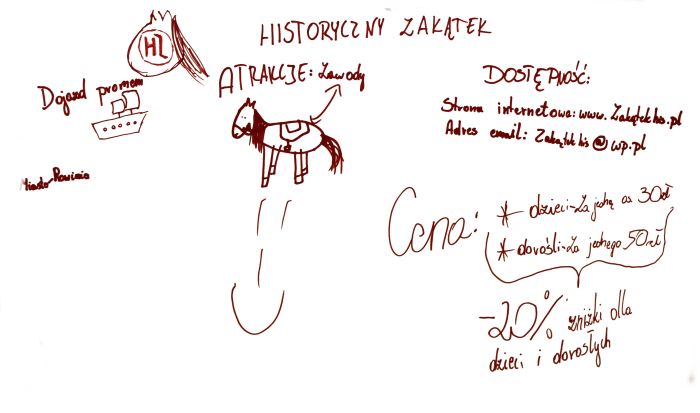 HISTORYCZNY ZAKĄTEK
HZ
Dojazd promem
Miasto Rowinia
ATRAKCJE: Zawody
DOSTĘPNOŚĆ:
Strona internetowa: www.Zakątekhis.pl
Adres email: Zakątekhis@wp.pl
Cena:
* dzieci-Za jedną os 30zł
* dorośli-Za jednego 50zł
-20% zniżki dla
dzieci i dorosłych